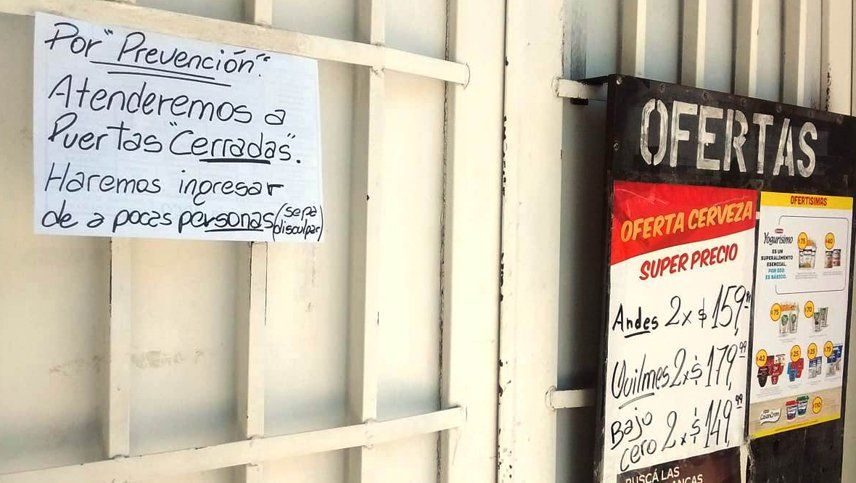 Por "Prevención".
Atenderemos a
Puertas "Cerradas".
Haremos ingresar
de a pocas personas (sepa
disculpar)
OFERTAS
OFERTA CERVEZA
SUPER PRECIO
Andes 2 x $ 159,99
Quilmes 2 x $ 179,99
Bajo
cero 2 x $ 149,99
BUSCÁ LAS
OFERTISIMAS
Yogurísimo
ES UN
SUPERALIMENTO
ESENCIAL